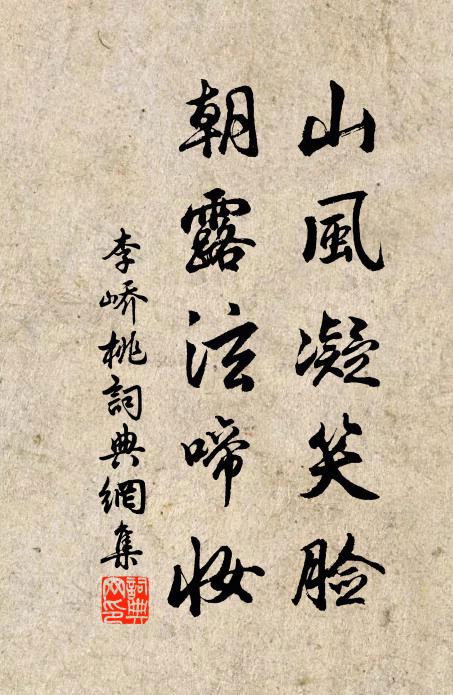 山風凝笑脸
朝露泫啼妆
李峤桃詞典網集
詞典網印